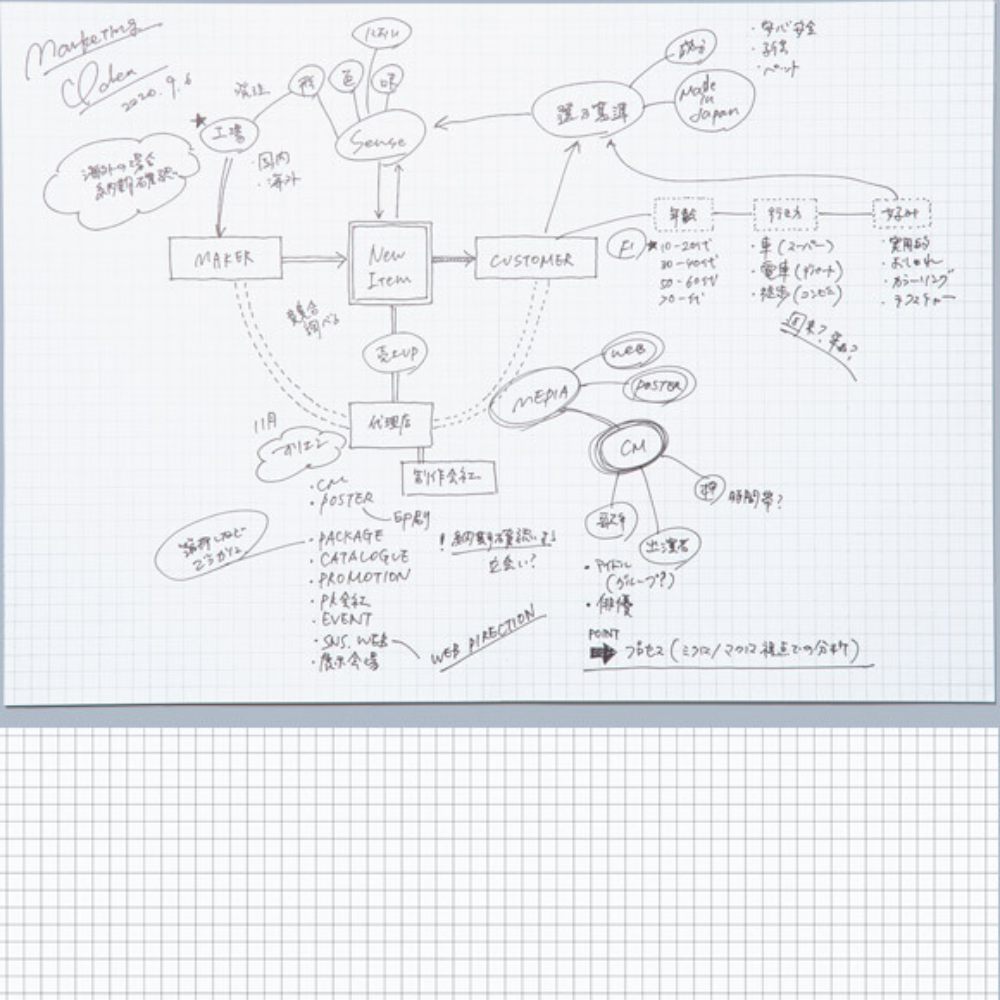 Marketing
2020.9.6
発注
形
色
Sense
工場
・国内
・海外
海外の場合
納期確認
選ぶ基準
成分
Made
in
Japan
・安心安全
・子供
・ペット
MAKER
New
Item
CUSTOMER
年齢
行き方
好み
F1
10-20代
30-40代
50-60代
70-代
・車(スーパー)
・電車(デパート)
・徒歩(コンビニ)
・実用的
・おしゃれ
・カラーリング
・テクスチャー
競合
調べる
売上UP
代理店
制作会社
11月
オリエン
MEDIA
WEB
POSTER
CM
歌手
出演者
時間帯?
・アイドル
(グループ?)
・俳優
・CM
・POSTER
印刷
・PACKAGE
・CATALOGUE
・PROMOTION
・PR会社
・EVENT
・SNS, WEB
・展示会場
WEB DIRECTION
! 納期確認する
立会い?
POINT
プロセス(ミクロ/マクロ視点での分析)